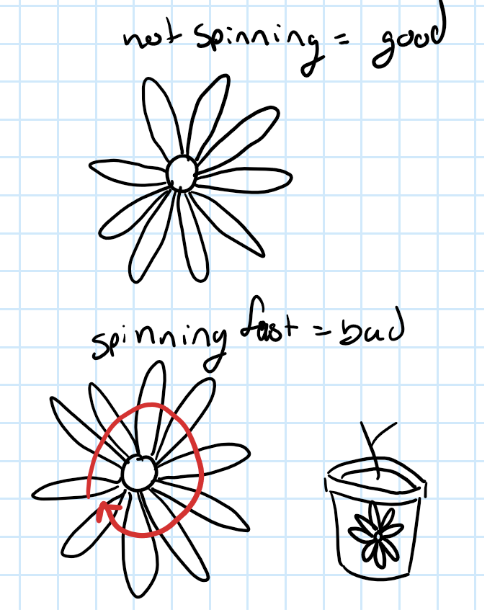 not spinning = good
spinning fast = bad